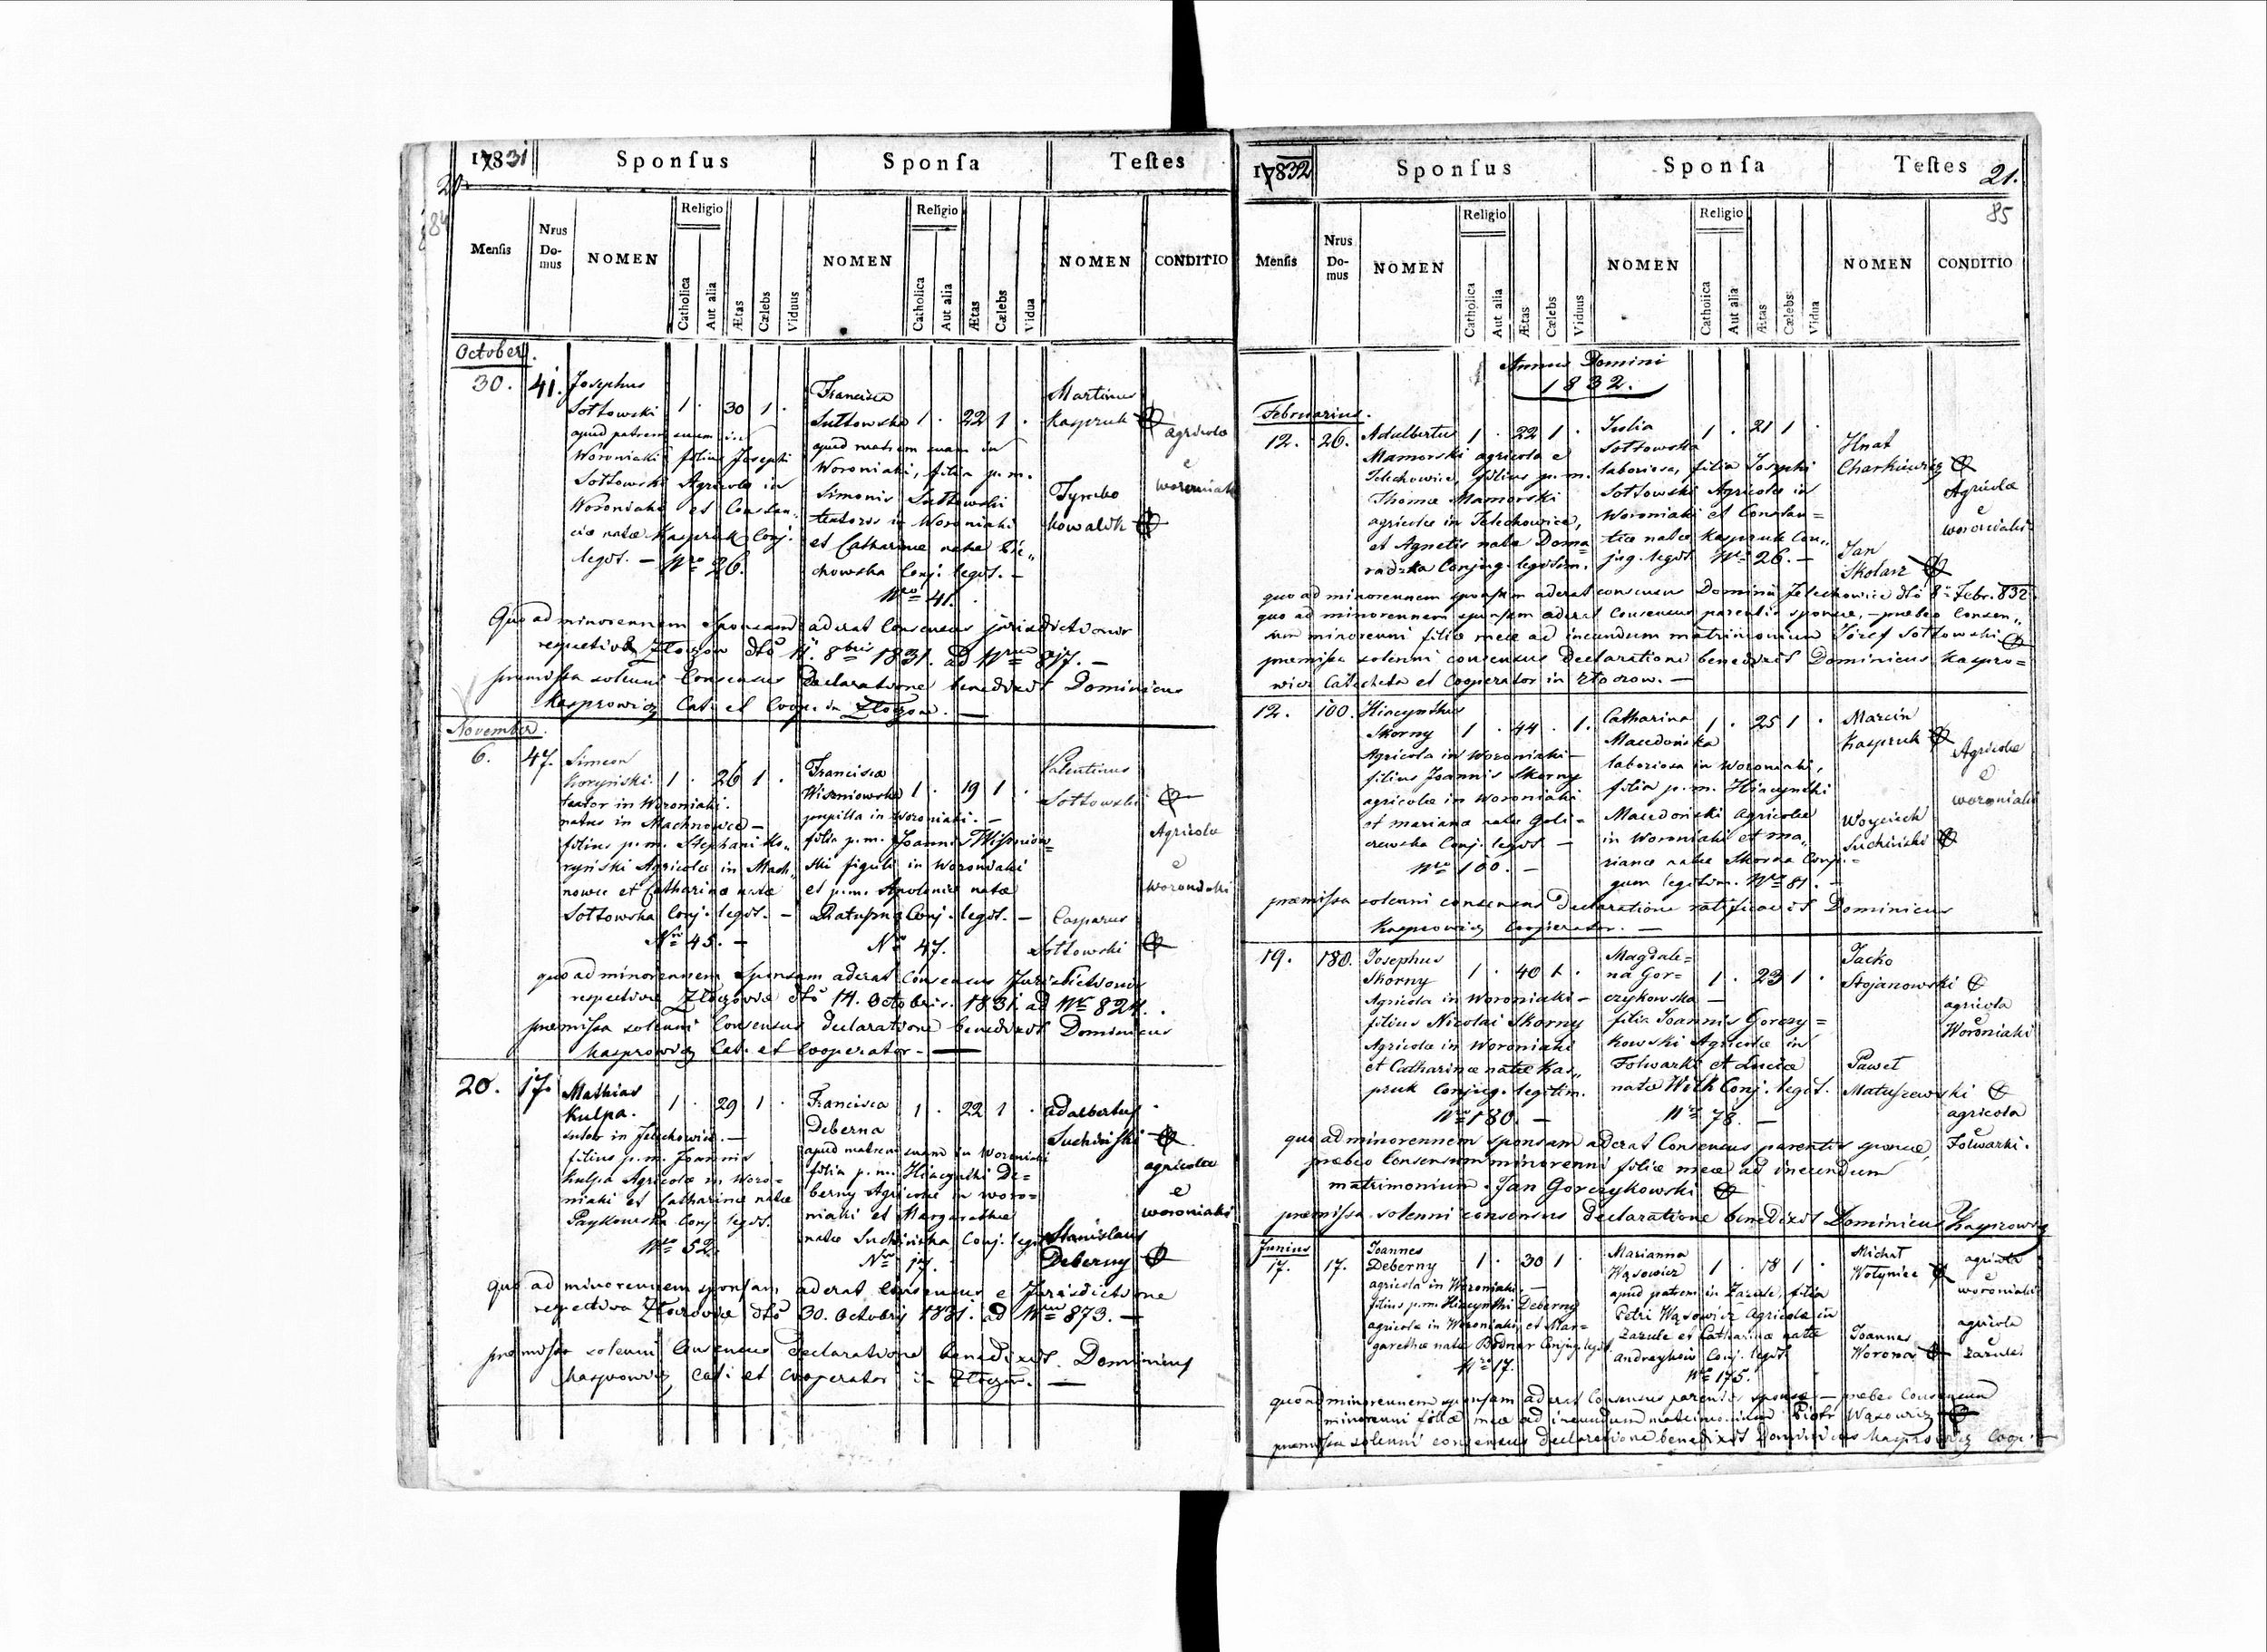 17831 Sponſus Sponſa Teſtes
20.
84
Menſis Nrus Do-mus NOMEN Religio Catholica Aut alia Ætas Cælebs Viduus NOMEN Religio Catholica Aut alia Ætas Cælebs Vidua NOMEN CONDITIO
October.
30. 41. Josephus
Sołtowski 1 . 30 1 .
apud patrem suum in
Woroniaki filius Josephi
Sołtowski Agricolæ in
Woroniaki et Constan„
ciæ natæ Kaspruk Conj.
legit. — Nro 26.
Francisca
Sułtowska 1 . 22 1 .
apud matrem suam in
Woroniaki, filia p.m.
Simonis Sułtowski
textoris in Woroniaki
et Catharinæ natæ
chowska Conj. legit. —
Nro 41.
Martinus
Kaspruk
agricola
e
woroniaki
Tymko
Kowaluk
Quo ad minorennem sponsam aderat Consensus jurisdictionis
respectivæ Złoczow dto 11. 8bris 1831. ad Nrum 817. —
præmissa solenni Consensus Declaratione benedixit Dominicus
Kasprowicz Cat. et Coop. in Złoczow. —
November.
6. 47. Simeon
Koryński 1 . 26 1 .
textor in Woroniaki.
natus in Machnowce —
filius p.m. Stephani Ko„
ryński Agricolæ in Mach„
nowce et Catharinæ natæ
Sołtowska Conj. legit. —
Nro 45. —
Francisca
Wiszniowska 1 . 19 1 .
pupilla in Woroniaki. —
filia p.m. Joannis Wiſzniow=
ski figuli in Woroniaki
et p.m. Apoloniæ natæ
Conj. legit. —
Nro 47.
Valentinus
Sołtowski
Agricolæ
e
Woroniaki
Casparus
Sołtowski
quo ad minorennem Sponsam aderat Consensus Jurisdictionis
respectivæ Złoczoviæ dto 14. Octobris. 1831 ad Nr 824.
præmiſsa solenni Consensus declaratione benedixit Dominicus
Kasprowicz Cat. et Cooperator. —
20. 17. Mathias
Kulpa. 1 . 29 1 .
sutor in Jelechowice. —
filius p.m. Joannis
Kulpa Agricolæ in Woro=
niaki et Catharinæ natæ
Conj. legit.
Nro 52.
Francisca
Deberna 1 . 22 1 .
apud matrem suam in Woroniaki
filia p.m. Hiacynthi De=
berny Agricolæ in Woro=
niaki et Margarethæ
natæ Suchińska Conj. legit.
Nro 17.
adalbertus
Suchińſki
agricolæ
e
woroniaki
Stanislaus
Deberny
quo ad minorennem sponsam aderat Consensus e Jurisdictione
respectiva Złoczoviæ dto 30. Octobris 1831. ad Nrum 873. —
præmiſsa solenni Consensus declaratione benedixit Dominicus
Kasprowicz, Cat: et Cooperator in Złoczow. —
17832 Sponſus Sponſa Teſtes 21.
85
Menſis Nrus Do-mus NOMEN Religio Catholica Aut alia Ætas Cælebs Viduus NOMEN Religio Catholica Aut alia Ætas Cælebs Vidua NOMEN CONDITIO
Annus Domini
1832.
Februarius.
12. 26. Adalbertus 1 . 22 1 .
Mamorski agricola e
Jelechowice, filius p.m.
Thomæ Mamorski
agricolæ in Jelechowice,
et Agnetis natæ Doma=
radzka Conjug. legitim.
Julia
Sołtowska 1 . 21 1 .
laboriosa, filia Josephi
Sołtowski Agricolæ in
Woroniaki et Constan=
tiæ natæ Kaspruk Con„
jug. legit. Nro 26. —
Hnat
Charkiewicz
Agricolæ
e
woroniaki
Jan
Skolarz
quo ad minorennem sponsum aderat consensus Dominii Jelechowice dto 8 Febr. 832
quo ad minorennem sponsam aderat Consensus parentis sponsæ, — præbeo Consen„
sum minorenni filiæ meæ ad ineundum matrimonium Józef Sołtowski
præmiſsa solenni consensus Declaratione benedixit Dominicus Kaspro=
wicz Catecheta et Cooperator in Złoczow. —
12. 100. Hiacynthus
Skorny 1 . 44 . 1.
Agricola in Woroniaki —
filius Joannis Skorny
agricolæ in Woroniaki
et Marianæ natæ Goli=
czewska Conj. legit —
Nro 100. —
Catharina 1 . 25 1 .
Macedońska
laboriosa in Woroniaki,
filia p.m. Hiacynthi
Macedoński Agricolæ
in Woroniaki et Ma„
riannæ natæ Skorska Conj=
gum legitim. Nro 81. —
Marcin
Kaspruk
Agricolæ
e
woroniaki
Woyciech
Suchiński
præmiſsa solenni consensus Declaratione ratificavit Dominicus
Kasprowicz Cooperator. —
19. 180. Josephus
Skorny 1 . 40 1 .
Agricola in Woroniaki —
filius Nicolai Skorny
Agricolæ in Woroniaki
et Catharinæ natæ Kas„
pruk Conjug. legitim.
Nro 180. —
Magdale=
na Gor= 1 . 23 1 .
czykowska —
filia Joannis Gorczy=
kowski Agricolæ in
Folwarki et Luciæ
natæ Wilk Conj. legit.
Nro 78. —
Jacko
Stojanowski
agricola
e
Woroniaki
Paweł
Matuſzewski
agricola
Folwarki.
quo ad minorennem sponsam aderat Consensus parentis sponsæ,
præbeo Consensum minorenni filiæ meæ ad ineundum
matrimonium. Jan Gorczykowski
præmiſsa solenni consensus declaratione benedixit Dominicus Kasprowicz
Junius
17. 17. Joannes
Deberny 1 . 30 1 .
agricola in Woroniaki. —
filius p.m. Hiacynthi Deberny
agricolæ in Woroniaki, et Mar=
garethæ natæ Bodnar Conjug. legit
Nro 17.
Marianna
Wąsowicz 1 . 18 1 .
apud patrem in Zazule, filia
Petri Wąsowicz Agricolæ in
Zazule et Catharinæ natæ
Andreyków Conj. legit.
Nro 175.
Michał
Wołyniec
agricola
e
woroniaki
Joannes
Worona
agricola
e
Zazule.
quo ad minorennem sponsam aderat Consensus parentis sponsæ — præbeo Consensum
minorenni filiæ meæ ad ineundum matrimonium Piotr Wąsowicz
præmiſsa solenni consensus declaratione benedixit Dominicus Kasprowicz Coop. —